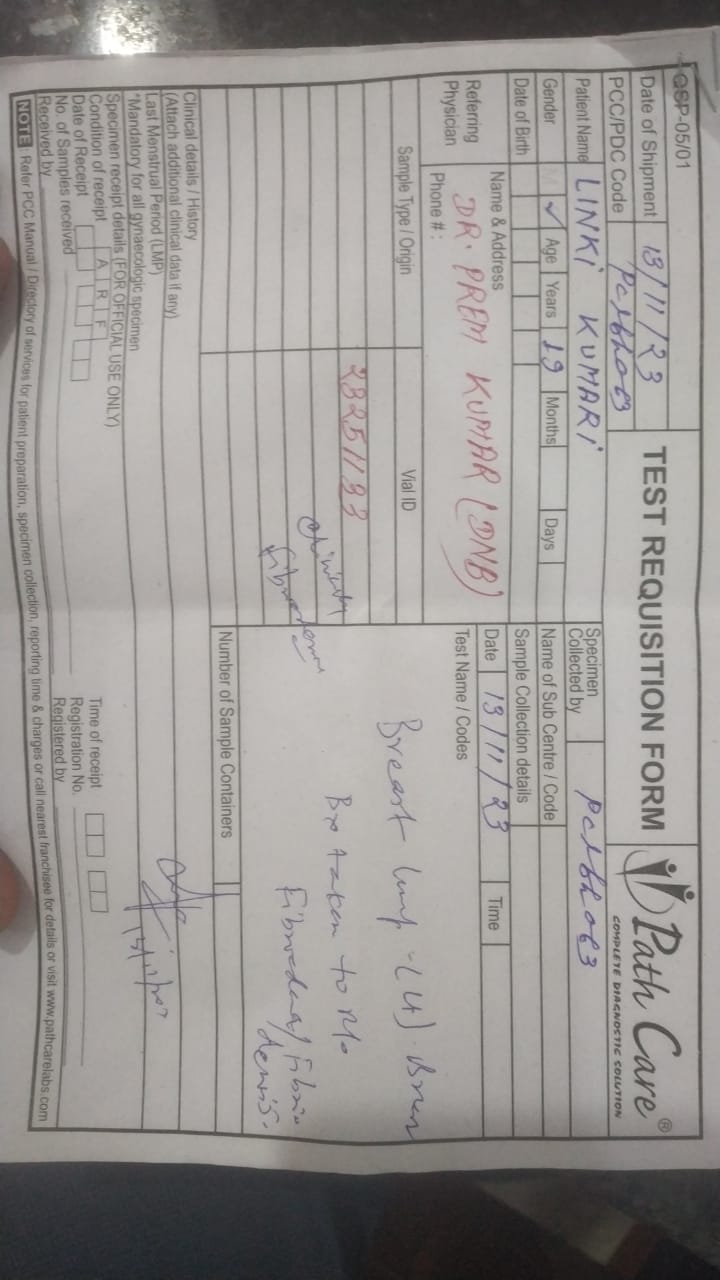 QSP-05/01
TEST REQUISITION FORM
Path Care®
COMPLETE DIAGNOSTIC SOLUTION
Date of Shipment 13/11/23
PCC/PDC Code
Patient Name LINKi KUMARi
Gender M ✓ Age Years 19 Months Days
Date of Birth
Referring Physician
Name & Address
DR. PREM KUMAR (DNB)
Phone # :
Specimen Collected by
Name of Sub Centre / Code
Sample Collection details
Date 13/11/23 Time
Test Name / Codes
Breast lump
taken to
Sample Type / Origin Vial ID
Number of Sample Containers
Clinical details / History
(Attach additional clinical data if any)
Last Menstrual Period (LMP)
*Mandatory for all gynaecologic specimen
Specimen receipt details (FOR OFFICIAL USE ONLY)
Condition of receipt A R F
Time of receipt
Date of Receipt
Registration No.
No. of Samples received
Registered by
Received by
NOTE Refer PCC Manual / Directory of services for patient preparation, specimen collection, reporting time & charges or call nearest franchisee for details or visit www.pathcarelabs.com